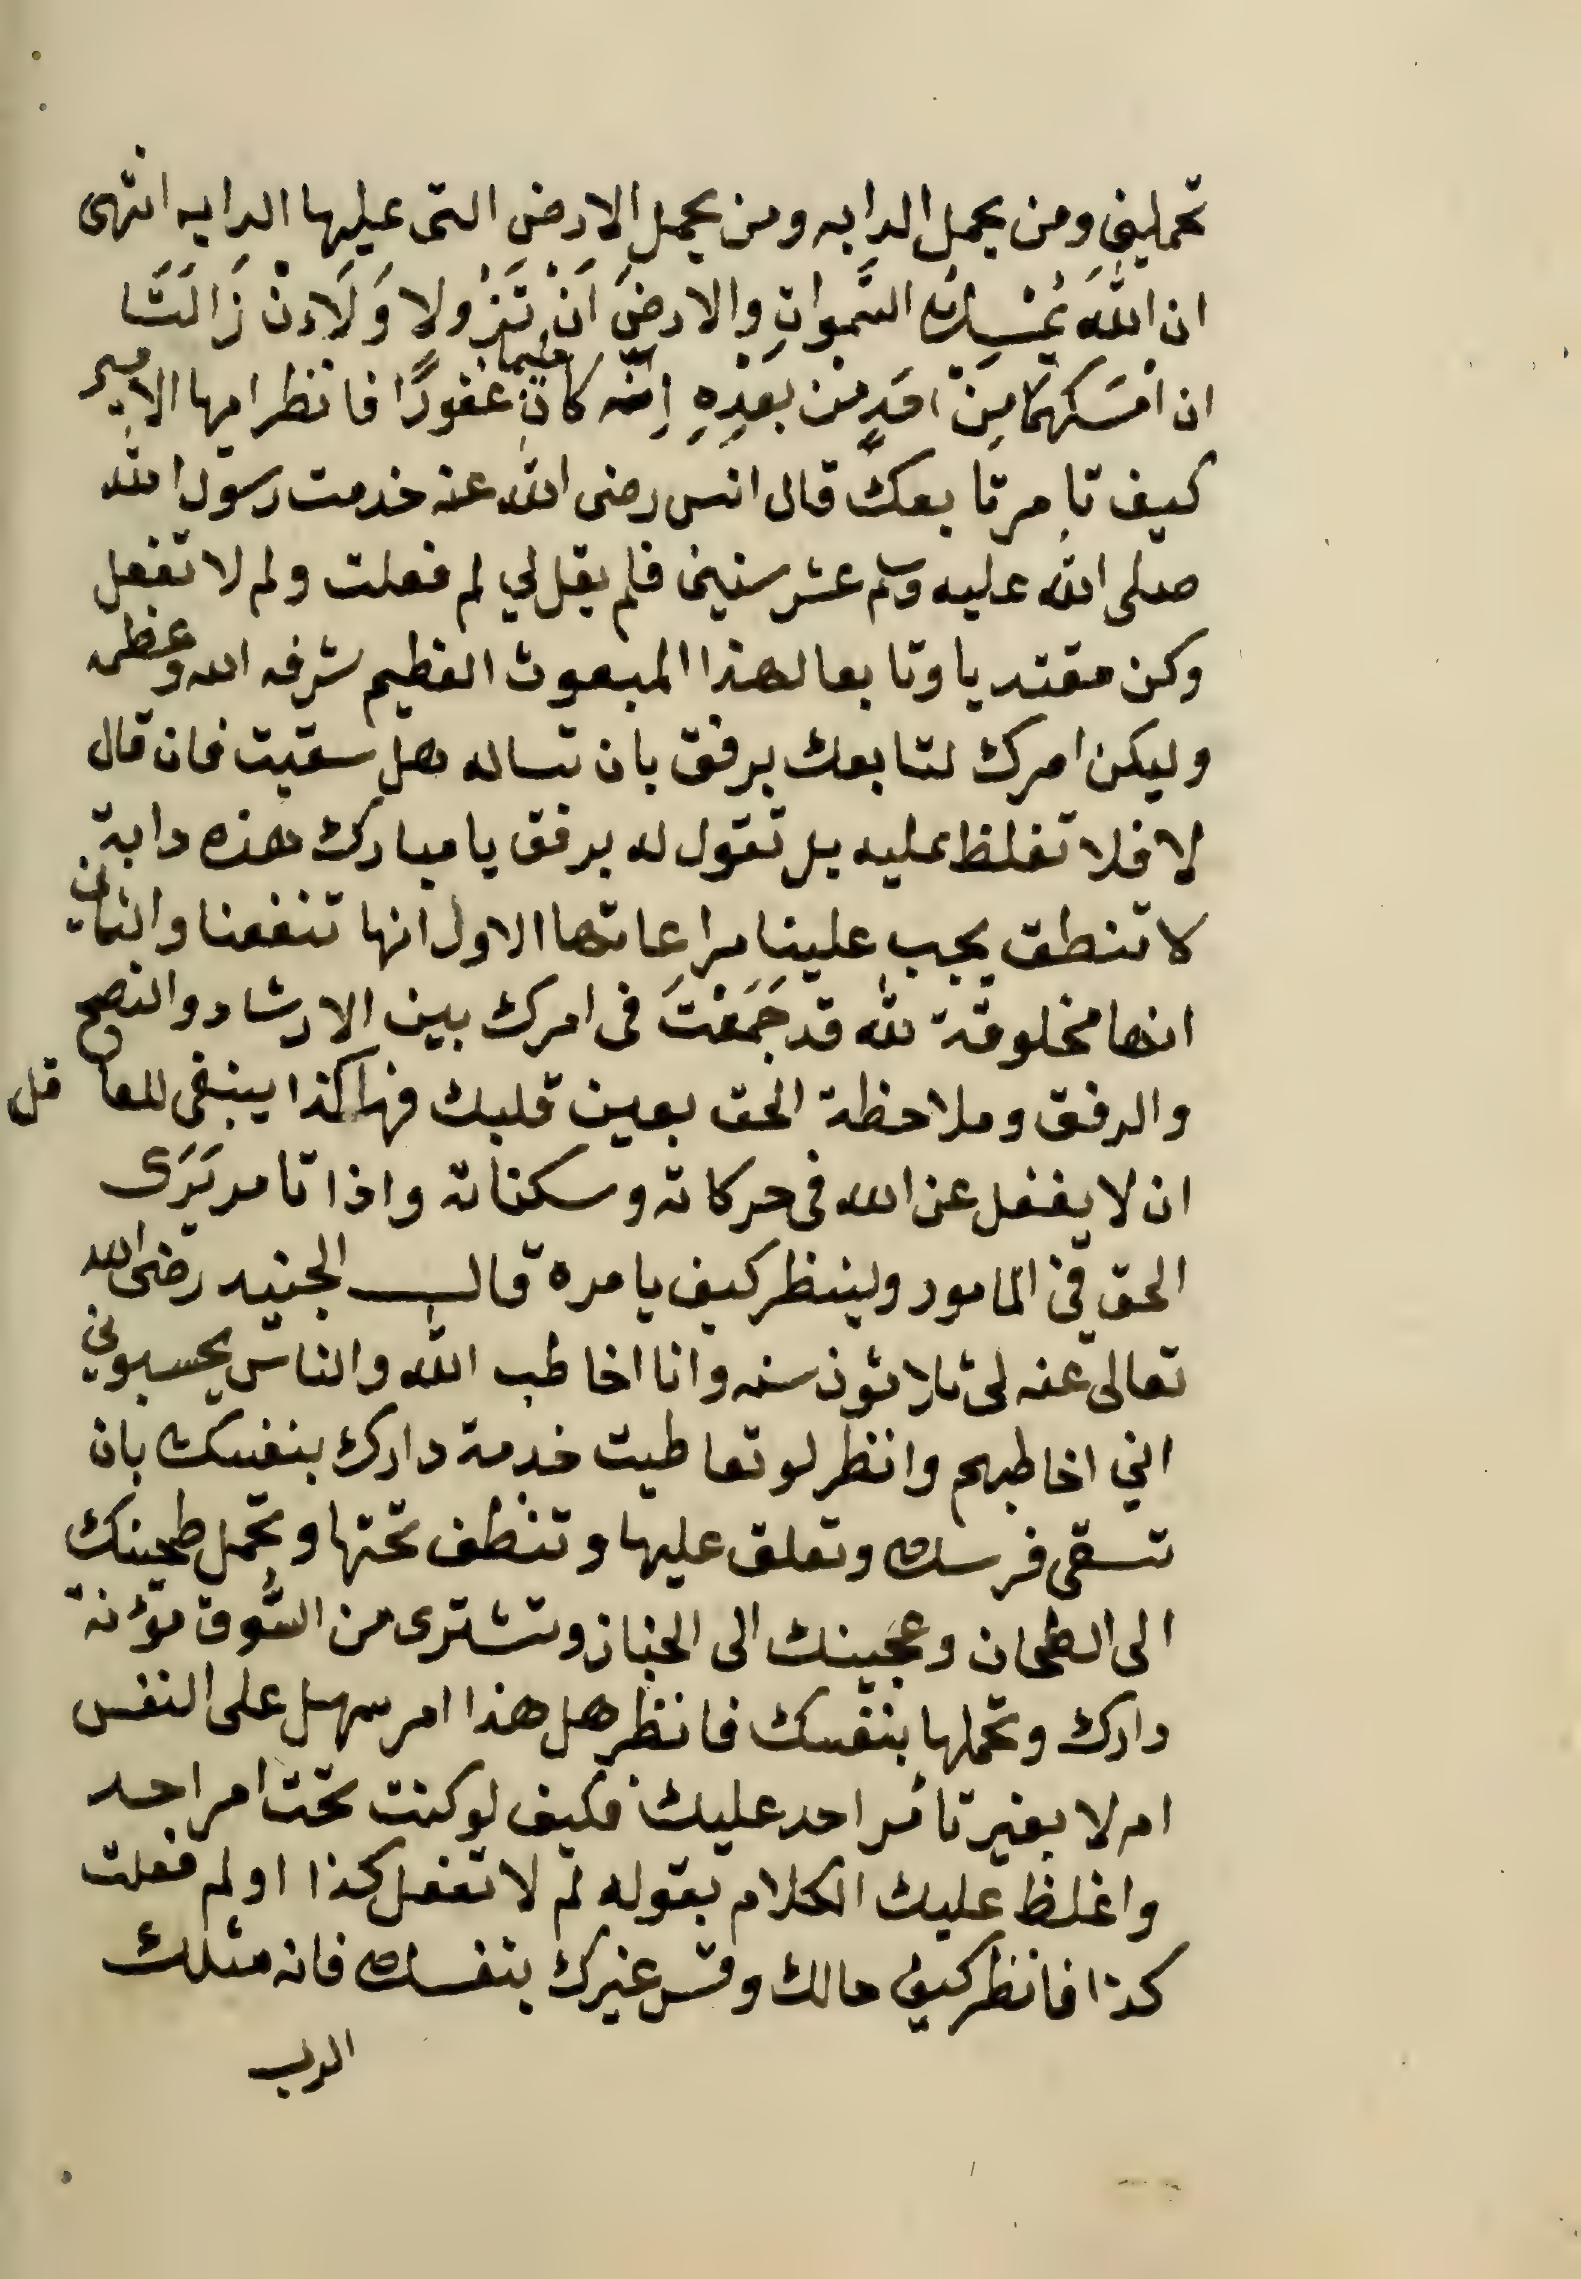 تحمليني ومن يحمل الدابه ومن يحمل الارض التى عليها الدابه انتهى
ان اللهَ يُمْسِكُ السَّموَاتِ والارضَ اَنْ تَزُولا وَلَاءِنْ زَالَتَا
ان اَمْسَكَهُمَا مِنْ احَدٍ مِنْ بَعْدِهِ اِنَّه كَانَ حليما غفورًا فانظر ايها الامير
كيف تامر تابعك قال انس رضى الله عنه خدمت رسول الله
صلى الله عليه وسلم عشر سنين فلم يقل لي لم فعلت ولم لا تفعل
وكن مقتديا وتابعا لهذا المبعوث العظيم شرفه الله وعظمه
وليكن امرك لتابعك برفق بان تساله هل سقيت فان قال
لا فلا تغلظ عليه بل تقول له برفق يا مبارك هذه دابة
لا تنطق يجب علينا مراعاتها الاول انها تنفعنا والثاني
انها مخلوقة لله قد جَمَعْتَ فى امرك بين الارشاد والنصح
والرفق وملاحظة الحق بعين قلبك فهاكذا ينبغى للعاقل
ان لا يغفل عن الله فى حركاته وسكناته واذا تامر تَرَى
الحق فى المامور ولينظر كيف يامره قال الجنيد رضى الله
تعالى عنه لى ثلاثون سنه وانا اخاطب الله والناس يحسبوني
اني اخاطبهم وانظر لو تعاطيت خدمة دارك بنفسك بان
تسقى فرسك وتعلق عليها وتنظف تحتها وتحمل طحينك
الى الطحان وعجينك الى الخباز وتشترى من السُّوق مؤنة
دارك وتحملها بنفسك فانظر هل هذا امر سهل على النفس
ام لا بغير تأمر احد عليك فكيف لو كنت تحت امر احد
واغلظ عليك الكلام بقوله لم لا تفعل كذا او لم فعلت
كذا فانظر كيف حالك وقس غيرك بنفسك فانه مثلك